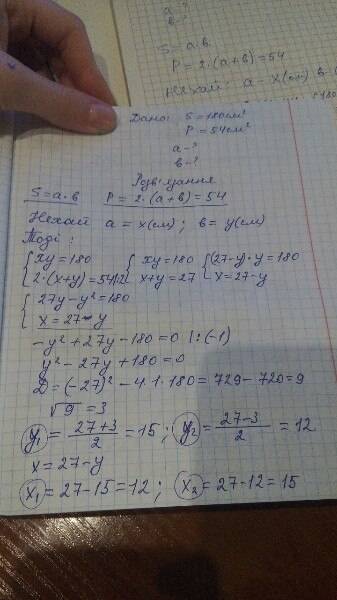 a-?
b-?
S = a·b
P = 2·(a+b) = 54
Нехай: a - x(см) b-(
Дано: S = 180см²
P = 54см²
a-?
b-?
Розв'язання
S = a·b P = 2·(a+b) = 54
Нехай a = x(см); b = y(см)
Тоді:
{xy = 180 {xy = 180 {(27-y)·y = 180
{2·(x+y) = 54|:2 {x+y = 27 {x = 27-y
{27y - y² = 180
{x = 27 - y
-y² + 27y - 180 = 0 |:(-1)
y² - 27y + 180 = 0
D = (-27)² - 4·1·180 = 729 - 720 = 9
√9 = 3
y₁ = (27+3)/2 = 15; y₂ = (27-3)/2 = 12
x = 27 - y
x₁ = 27 - 15 = 12; x₂ = 27 - 12 = 15